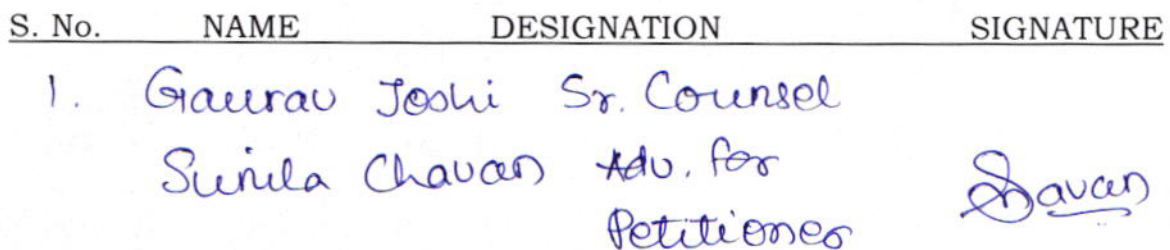 S. No. NAME DESIGNATION SIGNATURE
1. Gaurav Joshi Sr. Counsel
Sunila Chavan Adv. for
Petitioner
SChavan